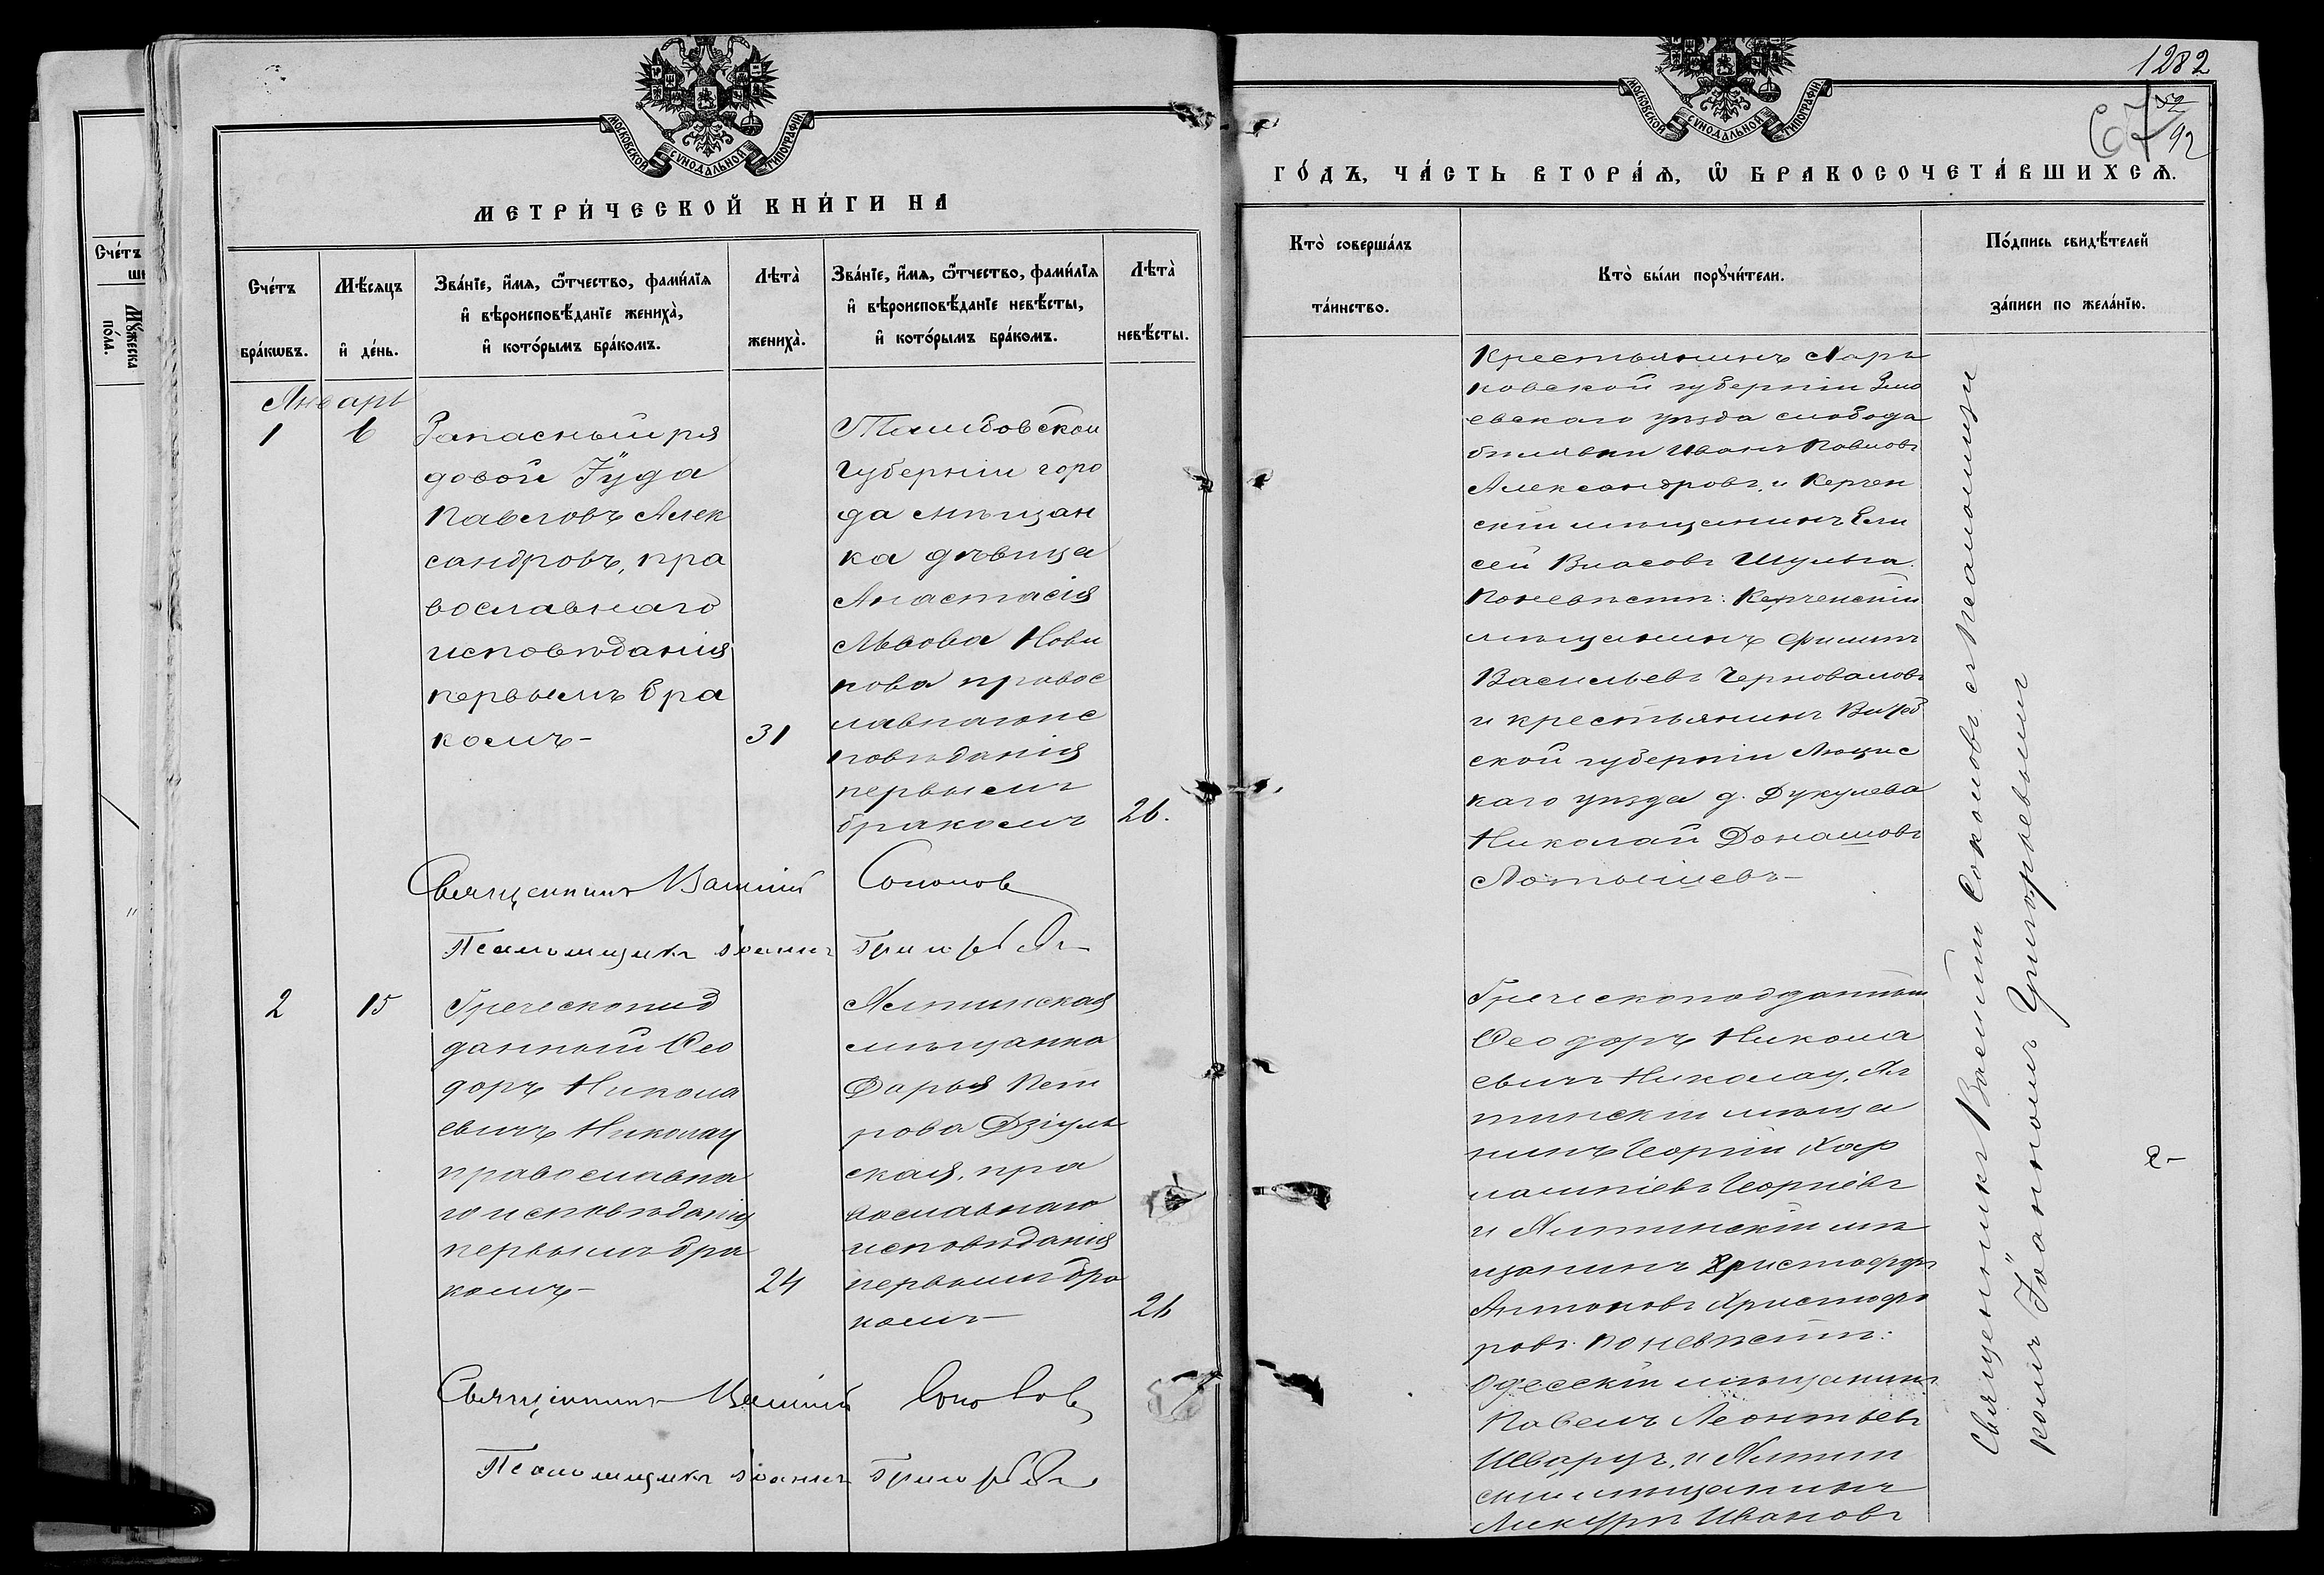 МОСКОВСКОЙ СѴНОДАЛЬНОЙ ТИПОГРАФІИ
МЕТРИ́ЧЕСКОЙ КНИ́ГИ НА
Сче́тъ
Му́жеска
по́ла.
Сче́тъ
бра́кѡвъ.
Мѣ́сяцъ
и҆ де́нь.
Зва́нїе, и҆́мѧ, ѻ҆́тчество, фами́лїѧ
и҆ вѣроисповѣ́данїе жениха̀,
и҆ кото́рымъ бра́комъ.
Лѣта̀
жениха̀.
Зва́нїе, и҆́мѧ, ѻ҆́тчество, фами́лїѧ
и҆ вѣроисповѣ́данїе невѣ́сты,
и҆ кото́рымъ бра́комъ.
Лѣта̀
невѣ́сты.
Январь
1
6
Запасный ря
довой Іуда
Павловъ Алек
сандровъ, пра
вославнаго
исповѣданія
первымъ бра
комъ-
31
Тамбовской
губерніи горо
да мѣщан
ка дѣвица
Анастасія
Львова Нови
кова правос
лавнаго ис
повѣданія
первымъ
бракомъ
26.
Священникъ Василій Соколовъ
Псаломщикъ Іоаннъ
2
15
Греческопод
данный Ѳео
доръ Никола
евичъ Николау
православна
го исповѣданія
первымъ бра
комъ-
24
Ялтинская
мѣщанка
Дарья Пет
рова Дзіуль
ская, пра
вославнаго
исповѣданія
первымъ бра
комъ-
26
Священникъ Василій Соколовъ
Псаломщикъ Іоаннъ
1282
67
92
МОСКОВСКОЙ СѴНОДАЛЬНОЙ ТИПОГРАФІИ
ГО́ДЪ, ЧА́СТЬ ВТОРА́Ѧ, Ѡ҆ БРАКОСОЧЕТА́ВШИХСѦ.
Кто̀ соверша́лъ
та́инство.
Кто̀ бы́ли порꙋчи́тели.
По́дпись свидѣ́телей
за́писи по жела́нїю.
Крестьянинъ Харь
ковской губерніи Змі
евскаго уѣзда слобода
Иванъ Павловъ
Александровъ, и Керчен
скій мѣщанинъ Ели
сей Власовъ Шульга.
По невѣстѣ: Керченскій
мѣщанинъ Филиппъ
Васильевъ Черноваловъ
и крестьянинъ Витеб
ской губерніи Люцинс
каго уѣзда д. Дукулева
Николай Донашовъ
Лотышевъ-
Греческоподданный
Ѳеодоръ Никола
евичъ Николау, Ял
тинскій мѣща
нинъ Георгій Хар
лампіевъ Георгіевъ
и Ялтинскій мѣ
щанинъ Христофоръ
Антоновъ Христофо
ровъ. По невѣстѣ:
Одесскій мѣщанинъ
Павелъ Леонтьевъ
Шварцъ, и Ялтин
скій мѣщанинъ
Ивановъ
Священникъ Василій Соколовъ съ Псаломщи
комъ Іоанномъ Григорьевымъ